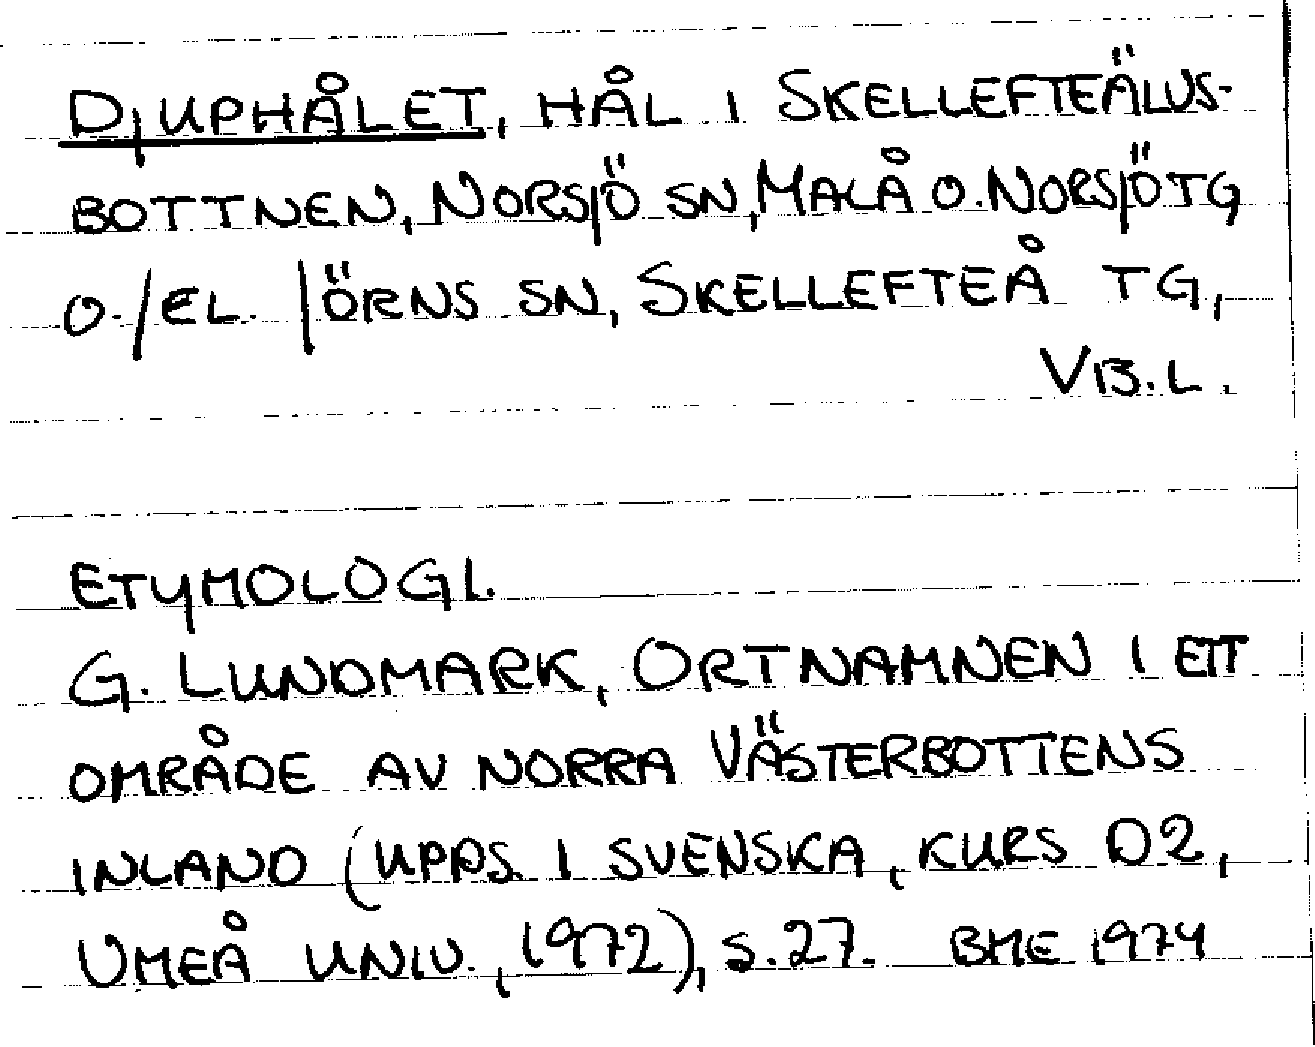 DJUPHÅLET, HÅL I SKELLEFTEÄLVS-
BOTTNEN, NORSJÖ SN, MALÅ O. NORSJÖ TG
O./EL. JÖRNS SN, SKELLEFTEÅ TG,
VB.L.
ETYMOLOGI.
G. LUNDMARK, ORTNAMNEN I ETT
OMRÅDE AV NORRA VÄSTERBOTTENS
INLAND (UPPS. I SVENSKA, KURS D2,
UMEÅ UNIV., 1972), S. 27. BME 1974